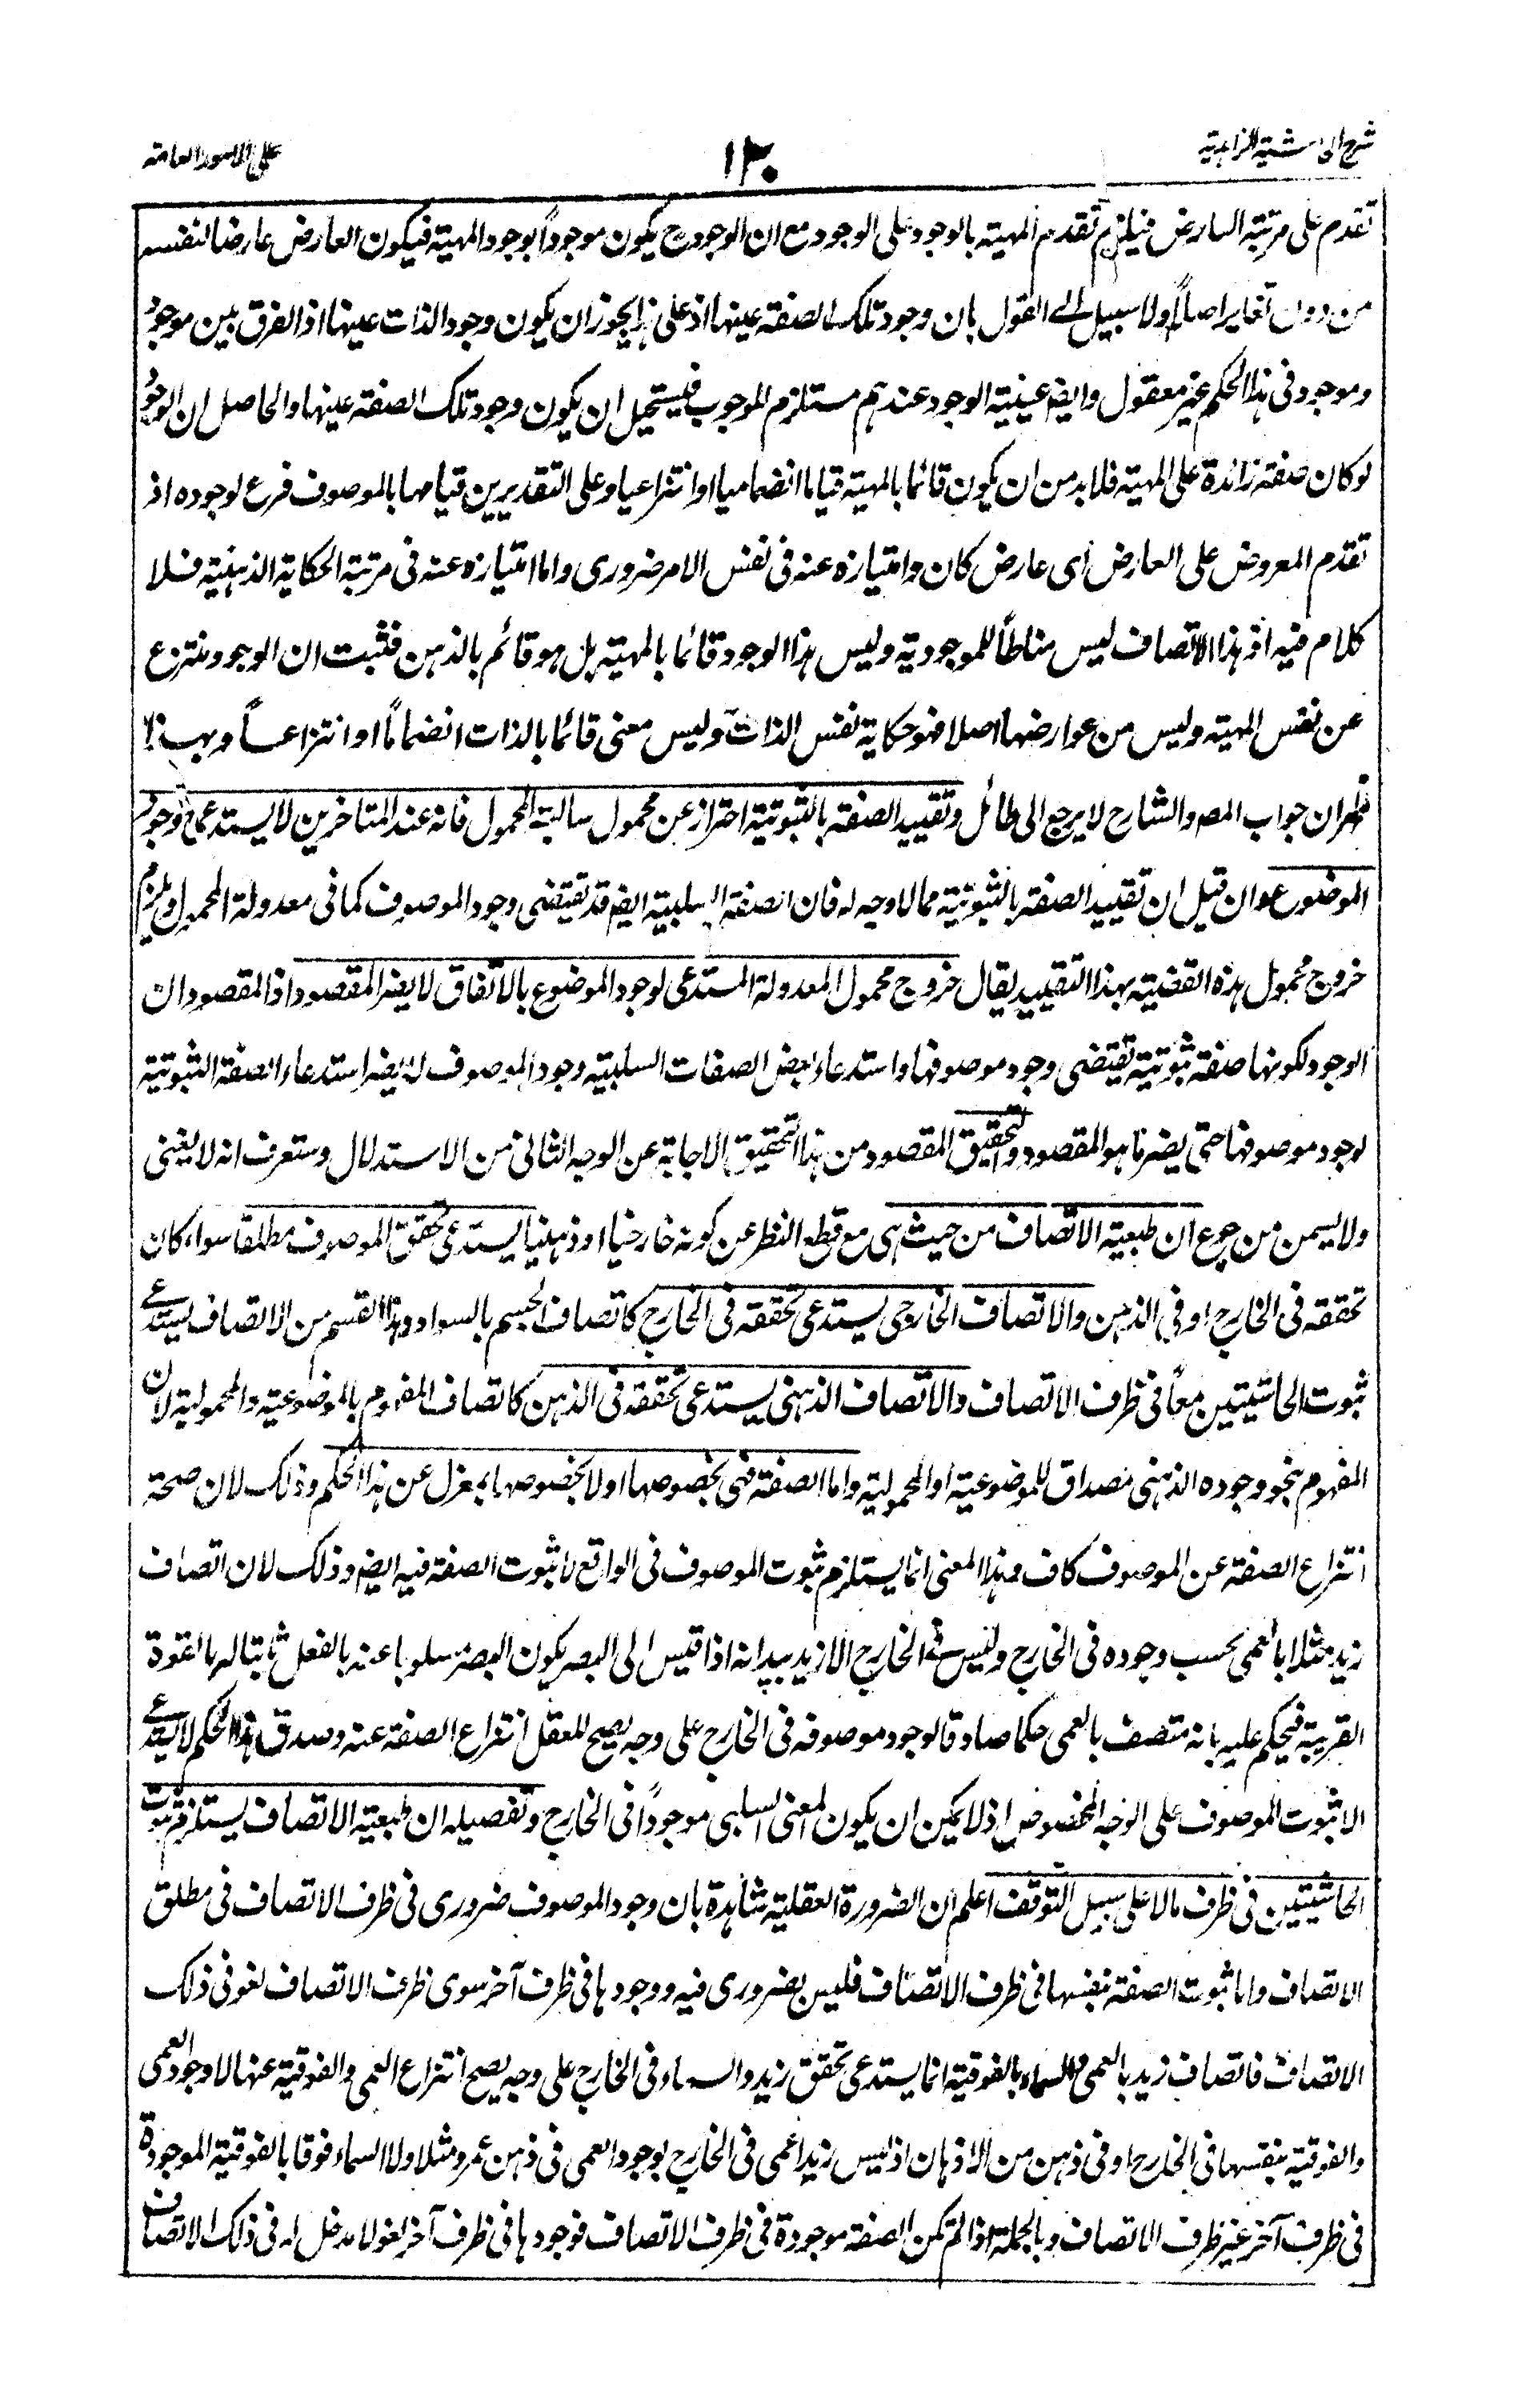 شرح الحاشية الزاهدية
١٣٠
على الامور العامة
تقدم على مرتبة العارض فيلزم تقدم المهية بالوجود على الوجود مع ان الوجود ح يكون موجوداً بوجود المهية فيكون العارض عارضا لنفسه
من دون تغاير اصلاً ولا سبيل الى القول بان وجود تلك الصفة عينها اذ على هذا يجوز ان يكون وجود الذات عينها اذ الفرق بين موجود
وموجود فى هذا الحكم غير معقول وايضا عينية الوجود عندهم مستلزم للوجوب فيستحيل ان يكون وجود تلك الصفة عينها والحاصل ان الوجود
لو كان صفة زائدة على المهية فلا بد من ان يكون قائما بالمهية قياما انضماميا او انتزاعيا وعلى التقديرين قيامها بالموصوف فرع لوجوده اذ
تقدم المعروض على العارض اى عارض كان وامتيازه عنه فى نفس الامر ضرورى واما امتيازه عنه فى مرتبة الحكاية الذهنية فلا
كلام فيه اذ هذا الاتصاف ليس مناطاً للموجودية وليس هذا الوجود قائما بالمهية بل هو قائم بالذهن فثبت ان الوجود منتزع
عن نفس المهية وليس من عوارضها اصلا فهو حكاية نفس الذات وليس معنى قائما بالذات انضماماً او انتزاعاً وبهذا
ظهر ان جواب المصـ والشارح لا يرجع الى طائل وتقييد الصفة بالثبوتية احتراز عن محمول سالبة المحمول فانه عند المتاخرين لا يستدعى وجود
الموضوع وان قيل ان تقييد الصفة بالثبوتية مما لا وجه له فان الصفة السلبية ايضا قد تقتضى وجود الموصوف كما فى معدولة المحمول ويلزم
خروج محمول هذه القضية بهذا التقييد يقال خروج محمول المعدولة المستدعى لوجود الموضوع بالاتفاق لا يضر المقصود اذ المقصود ان
الوجود لكونها صفة ثبوتية تقتضى وجود موصوفها واستدعاء بعض الصفات السلبية وجود الموصوف لا يضر استدعاء الصفة الثبوتية
لوجود موصوفها حتى يضر ما هو المقصود والتحقيق المقصود من هذا التحقيق الاجابة عن الوجه الثانى من الاستدلال وستعرف انه لا يغنى
ولا يسمن من جوع ان طبعية الاتصاف من حيث هى مع قطع النظر عن كونه خارجيا او ذهنيا يستدعى تحقق الموصوف مطلقا سواء كان
تحققه فى الخارج او فى الذهن والاتصاف الخارجى يستدعى تحققه فى الخارج كاتصاف الجسم بالسواد وهذا القسم من الاتصاف يستدعى
ثبوت الحاشيتين معاً فى ظرف الاتصاف والاتصاف الذهنى يستدعى تحققه فى الذهن كاتصاف المفهوم بالموضوعية والمحمولية لان
المفهوم بنحو وجوده الذهنى مصداق للموضوعية او المحمولية واما الصفة فهى بخصوصها او لا بخصوصها بمعزل عن هذا الحكم وذلك لان صحة
انتزاع الصفة عن الموصوف كاف وهذا المعنى انما يستلزم ثبوت الموصوف فى الواقع لا ثبوت الصفة فيه ايضا وذلك لان اتصاف
زيد مثلا باعمى بحسب وجوده فى الخارج وليس فى الخارج الا زيد بيد انه اذا قيس الى البصر يكون البصر مسلوبا عنه بالفعل ثابتا له بالقوة
القريبة فيحكم عليه بانه متصف بالعمى حكما صادقا لوجود موصوفه فى الخارج على وجه يصح للعقل انتزاع الصفة عنه وصدق هذا الحكم لا يستدعى
الا ثبوت الموصوف على الوجه المخصوص اذ لا يمكن ان يكون المعنى السلبى موجوداً فى الخارج وتفصيله ان طبعية الاتصاف يستلزم ثبوت
الحاشيتين فى ظرف ما لا على سبيل التوقف اعلم ان الضرورة العقلية شاهدة بان وجود الموصوف ضرورى فى ظرف الاتصاف فى مطلق
الاتصاف واما ثبوت الصفة بنفسها فى ظرف الاتصاف فليس بضرورى فيه ووجودها فى ظرف آخر سوى ظرف الاتصاف لغو فى ذلك
الاتصاف فاتصاف زيد بالعمى والسماء بالفوقية انما يستدعى تحقق زيد والسماء فى الخارج على وجه يصح انتزاع العمى والفوقية عنها لا وجود العمى
والفوقية بنفسها فى الخارج او فى ذهن من الاذهان اذ ليس زيد اعمى فى الخارج لوجود العمى فى ذهن عمرو مثلا ولا السماء فوقا بالفوقية الموجودة
فى ظرف آخر غير ظرف الاتصاف وبالجملة اذا لم تكن الصفة موجودة فى ظرف الاتصاف فوجودها فى ظرف آخر لغو لا مدخل له فى ذلك الاتصاف